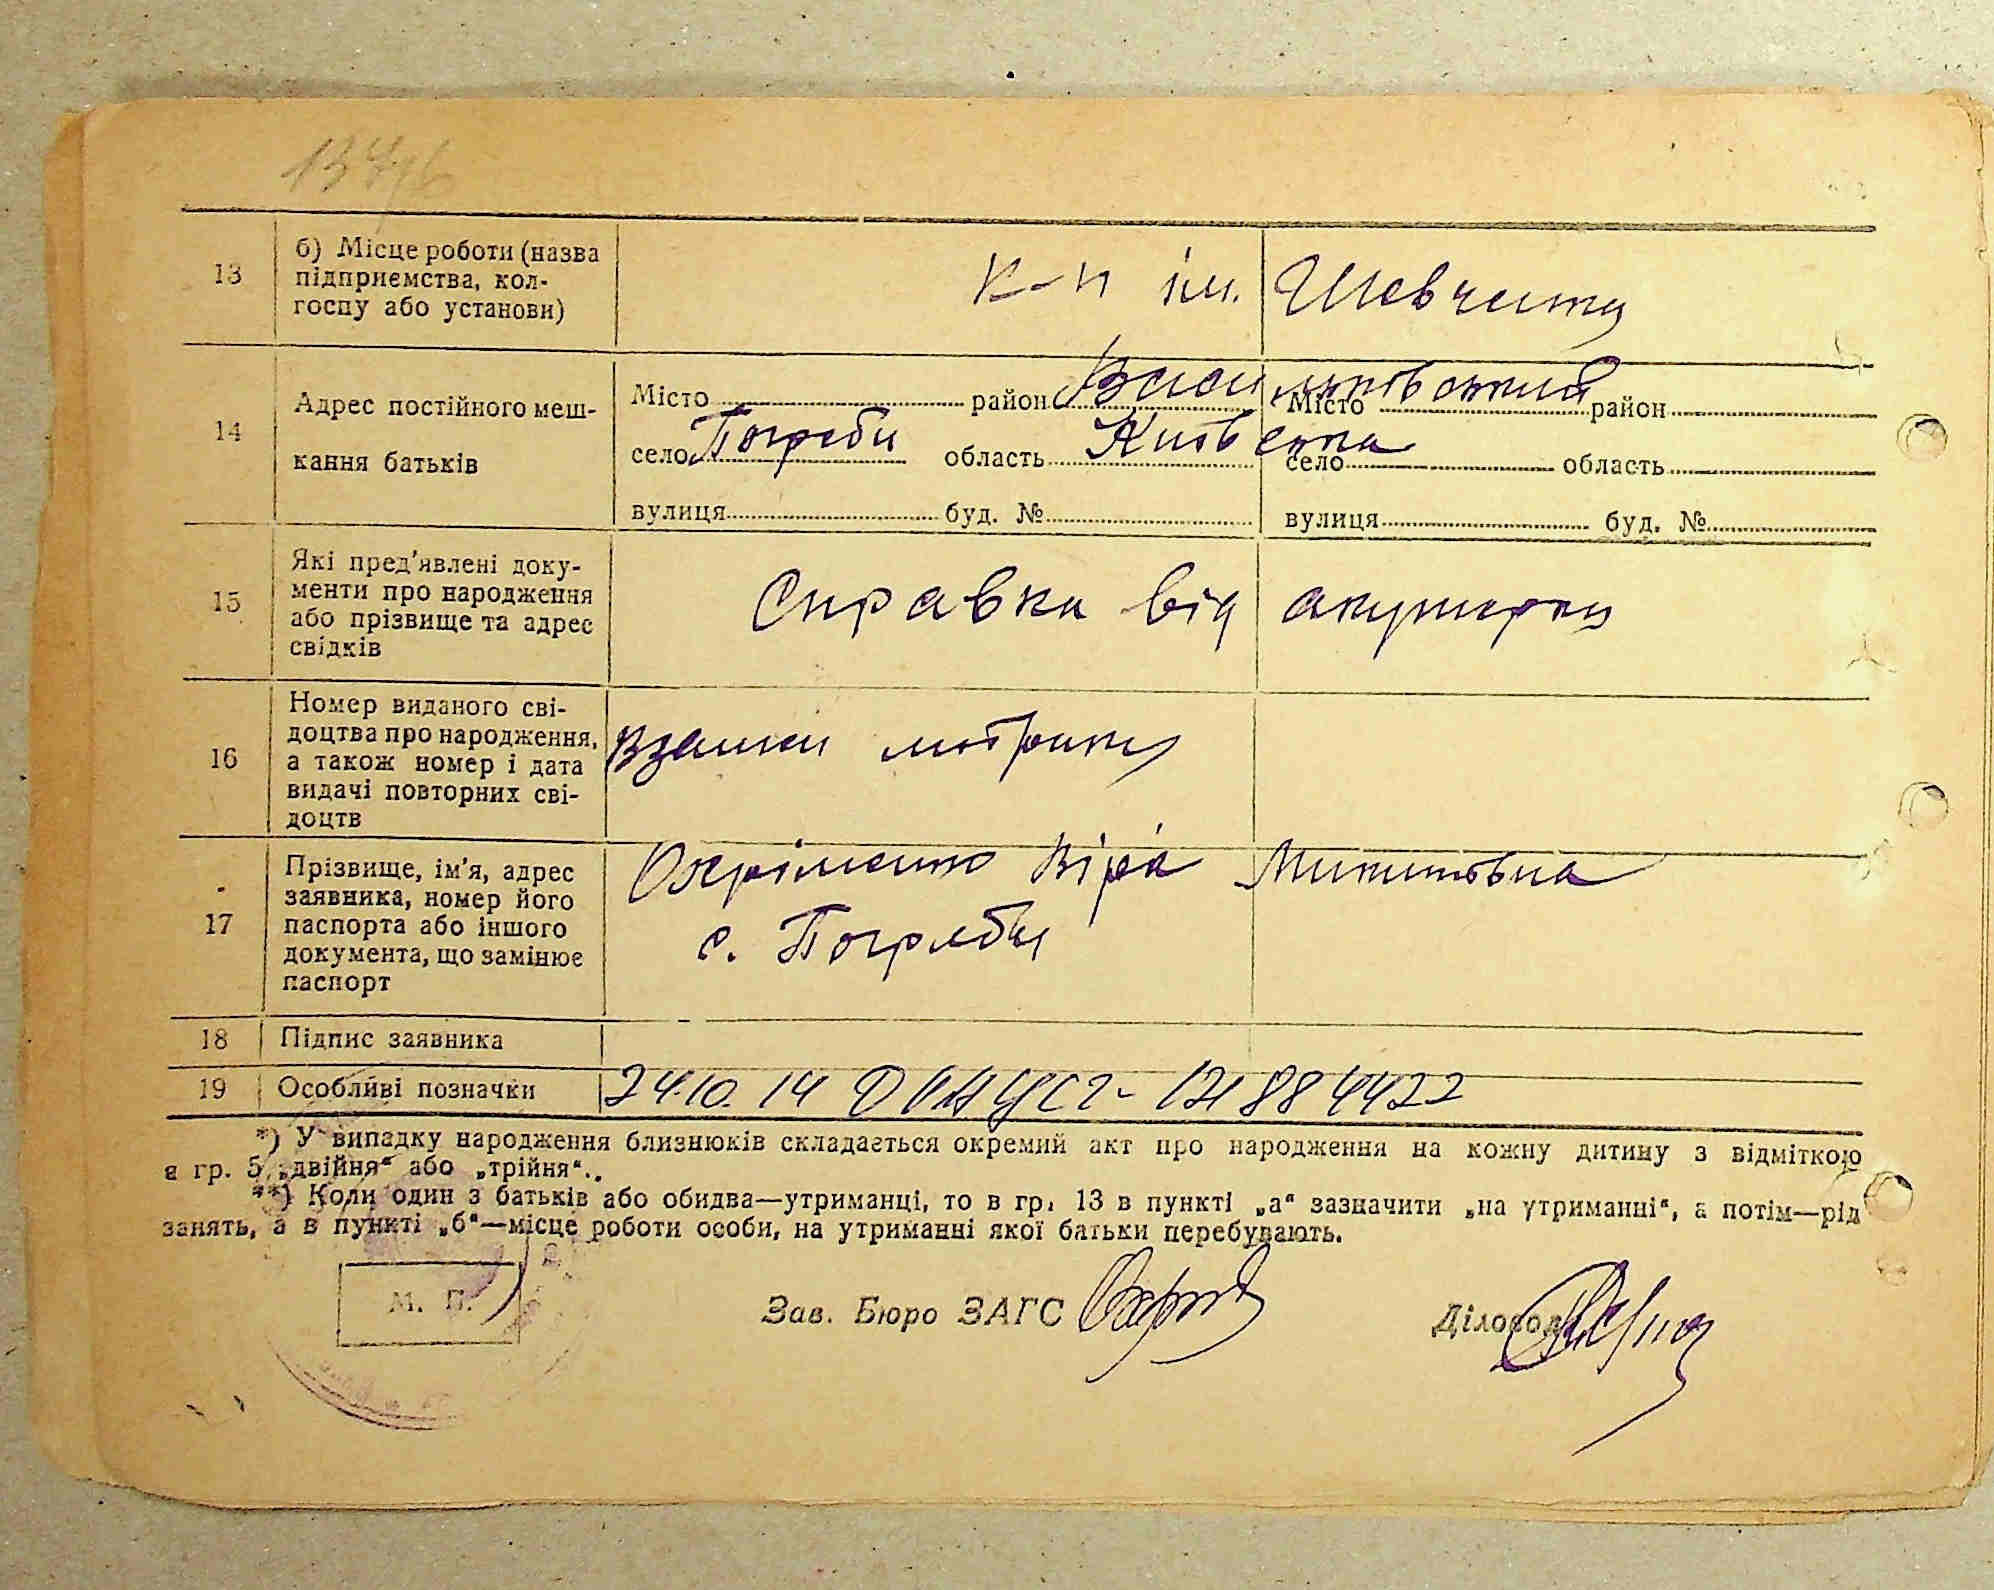 13
б) Місце роботи (назва
підприємства, кол-
госпу або установи)
к-п ім. Шевченка
14
Адрес постійного меш-
кання батьків
Місто район Васильківський Місто район
село Погреби область Київська село область
вулиця буд. № вулиця буд. №
15
Які пред'явлені доку-
менти про народження
або прізвище та адрес
свідків
Справка від акушерки
16
Номер виданого сві-
доцтва про народження,
а також номер і дата
видачі повторних сві-
доцтв
метрику
17
Прізвище, ім'я, адрес
заявника, номер його
паспорта або іншого
документа, що замінює
паспорт
Охріменко Віра Микитовна
с. Погреби
18 Підпис заявника
19 Особливі позначки 24.10.14
*) У випадку народження близнюків складається окремий акт про народження на кожну дитину з відміткою
в гр. 5 „двійня“ або „трійня“.
**) Коли один з батьків або обидва—утриманці, то в гр. 13 в пункті „а“ зазначити „на утриманні“, а потім—рід
занять, а в пункті „б“—місце роботи особи, на утриманні якої батьки перебувають.
М. П.
Зав. Бюро ЗАГС
Діловод